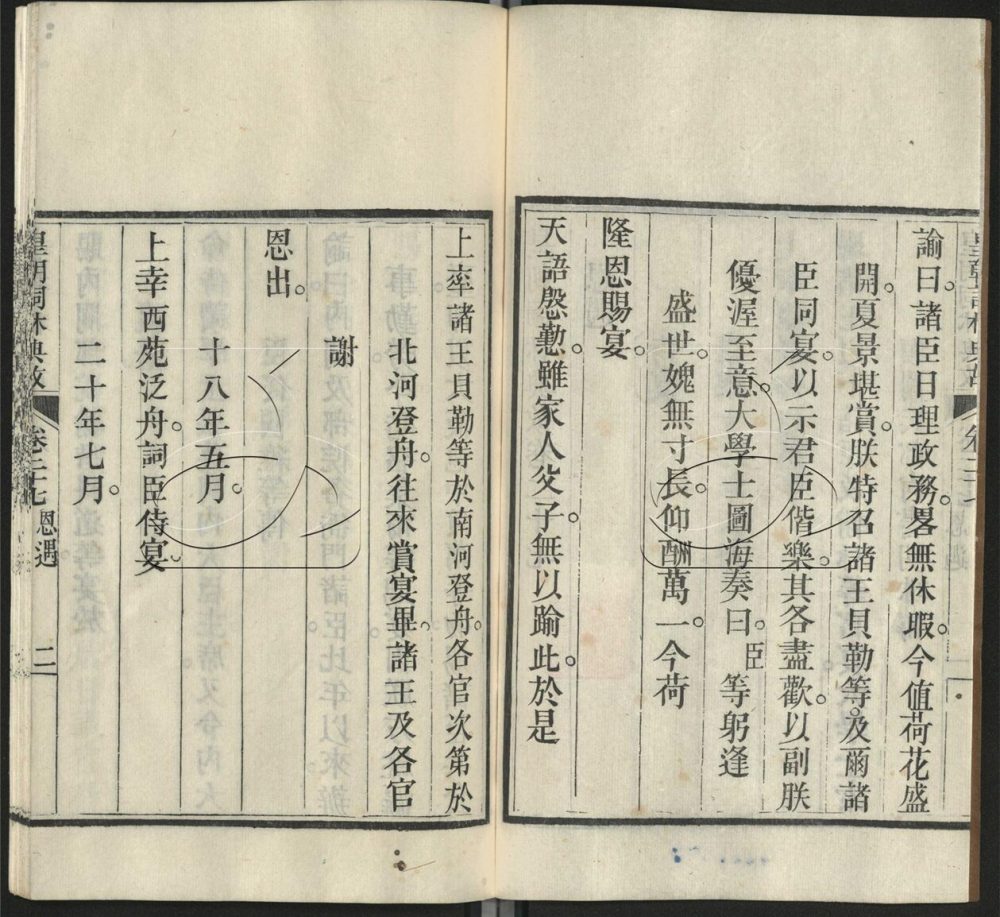 諭曰。諸臣日理政務。畧無休暇。今值荷花盛
開。夏景堪賞。朕特召諸王貝勒等。及爾諸
臣同宴。以示君臣偕樂。其各盡歡。以副朕
優渥至意。大學士圖海奏曰。臣等躬逢
盛世。媿無寸長。仰酬萬一。今荷
隆恩賜宴。
天語慇懃。雖家人父子。無以踰此。於是
上率諸王貝勒等於南河登舟。各官次第於
北河登舟。往來賞宴。畢。諸王及各官
謝
恩出。
十八年五月。
上幸西苑泛舟。詞臣侍宴。
二十年七月。
皇朝詞林典故 卷二十七 恩遇。 二